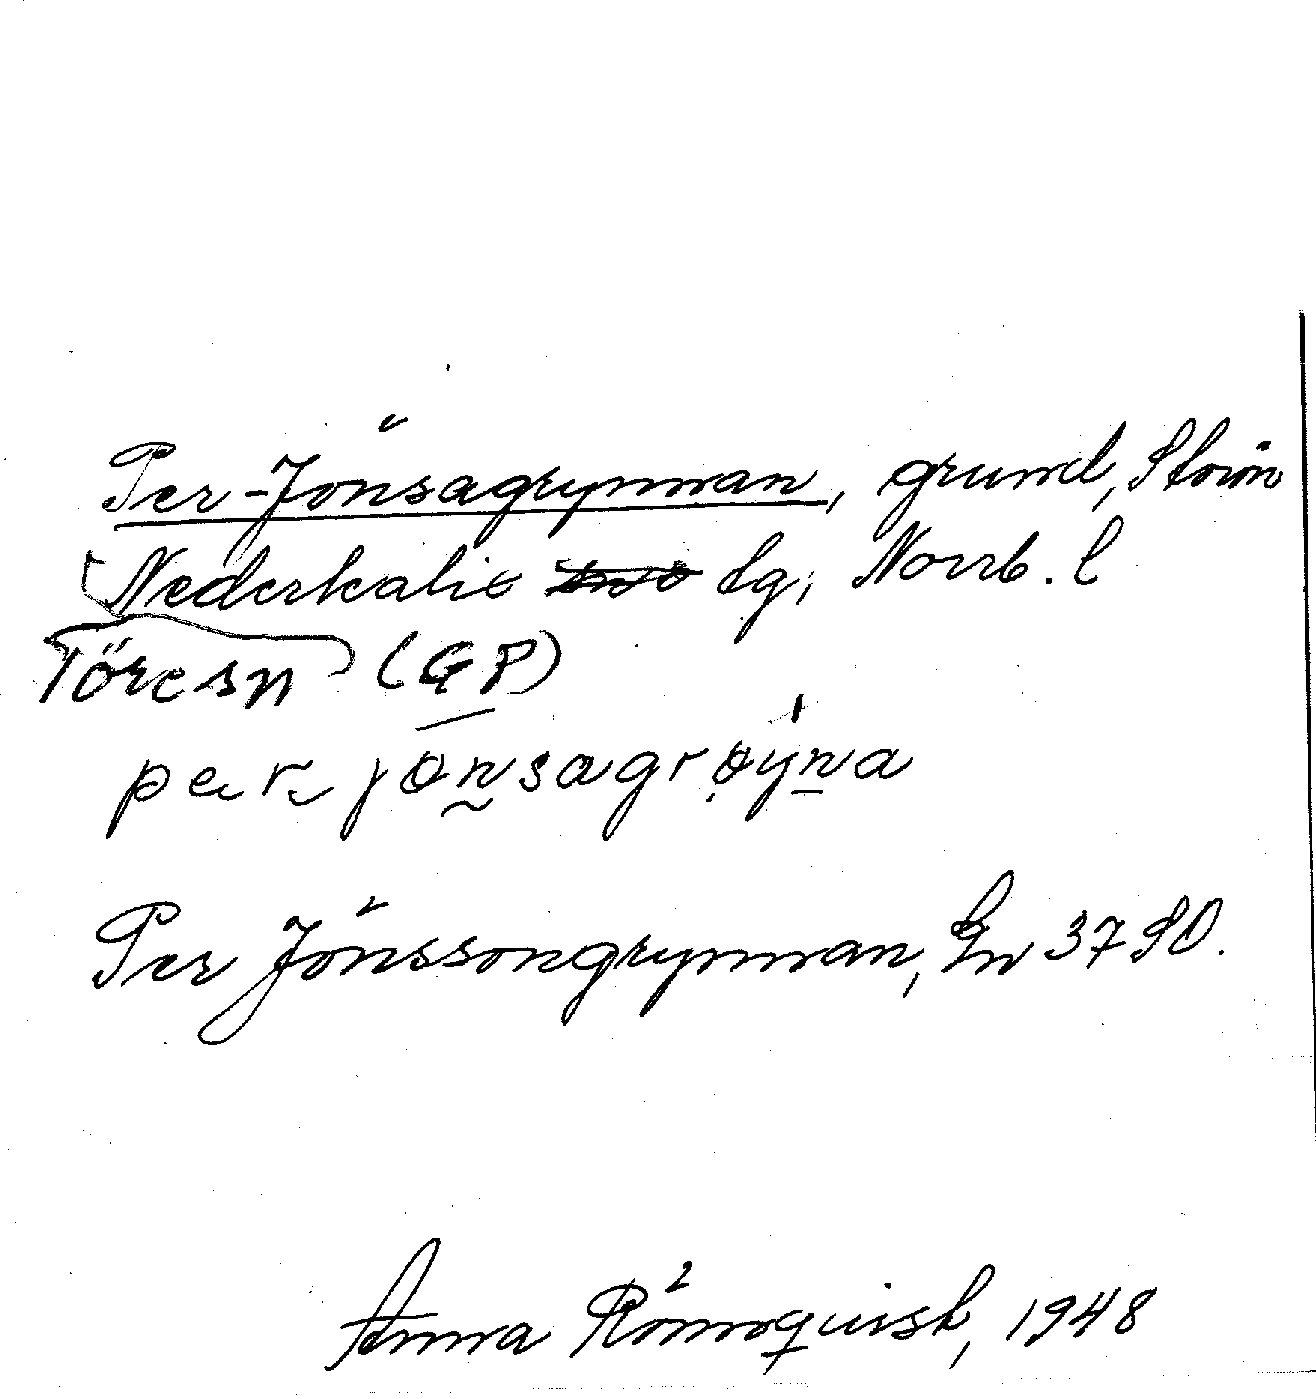 Per-Jönsagrynnan, grund, Storön
Nederkalix sn, Norrb. l
Töresn (GP)
per jönsagrøyna
Per Jönssongrynnan, Gn 37 SO.
Anna Rönnquist, 1948